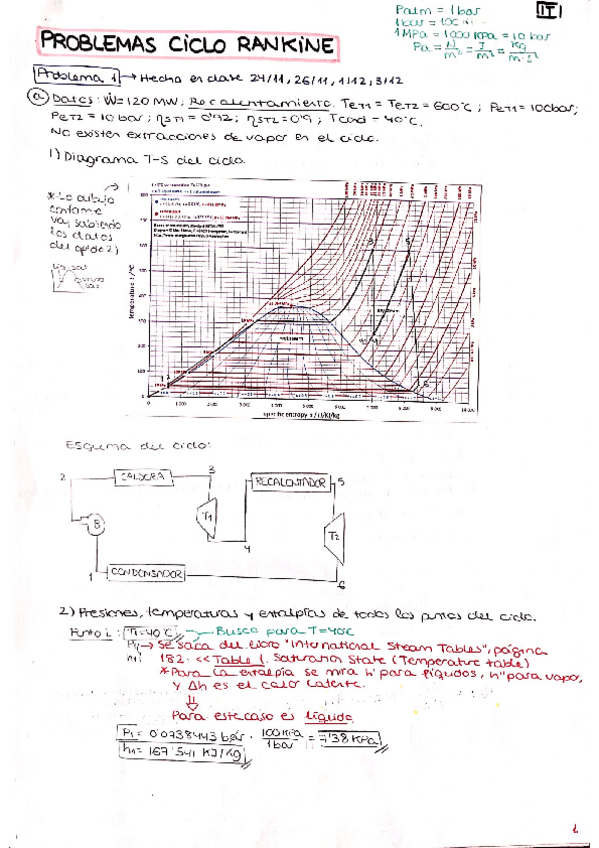 Patm = 1 bar
1 bar = 100
1 MPa = 1000 KPa = 10 bar
Pa = N/m² = J/m³ = kg/m·s²
IT
PROBLEMAS CICLO RANKINE
Problema 1 → Hecho en clase 24/11, 26/11, 1/12, 3/12
a) Datos: Ẇ = 120 MW; Recalentamiento. TET1 = TET2 = 600°C; PET1 = 100bar;
PET2 = 10 bar; ηST1 = 0'92; ηST2 = 0'9; Tcond = 40°C.
No existen extracciones de vapor en el ciclo.
1) Diagrama T-S del ciclo.
* Lo dibujo
conforme
voy sabiendo
los datos
del apdo 2)
temperature T / °C
specific entropy s / J/(K)kg
0 1 000 2 000 3 000 4 000 5 000 6 000 7 000 8 000 9 000 10 000
3 5
4
1
6
Esquema del ciclo:
2 CALDERA 3 RECALENTADOR 5
B T1 T2
4
1 CONDENSADOR 6
2) Presiones, temperaturas y entalpías de todos los puntos del ciclo.
Punto 1: T1=40°C → Busca para T=40°C
P1 → Se saca del libro "International Steam Tables", página
h1: 182. << Table 1. Saturation State (Temperature table)
* Para la entalpía se mira h' para líquidos, h" para vapor,
y Δh es el calor latente.
⇓
Para este caso es líquido
P1 = 0'0738443 bar · 100 KPa/1 bar = 7'38 KPa
h1 = 167'541 KJ/Kg
1